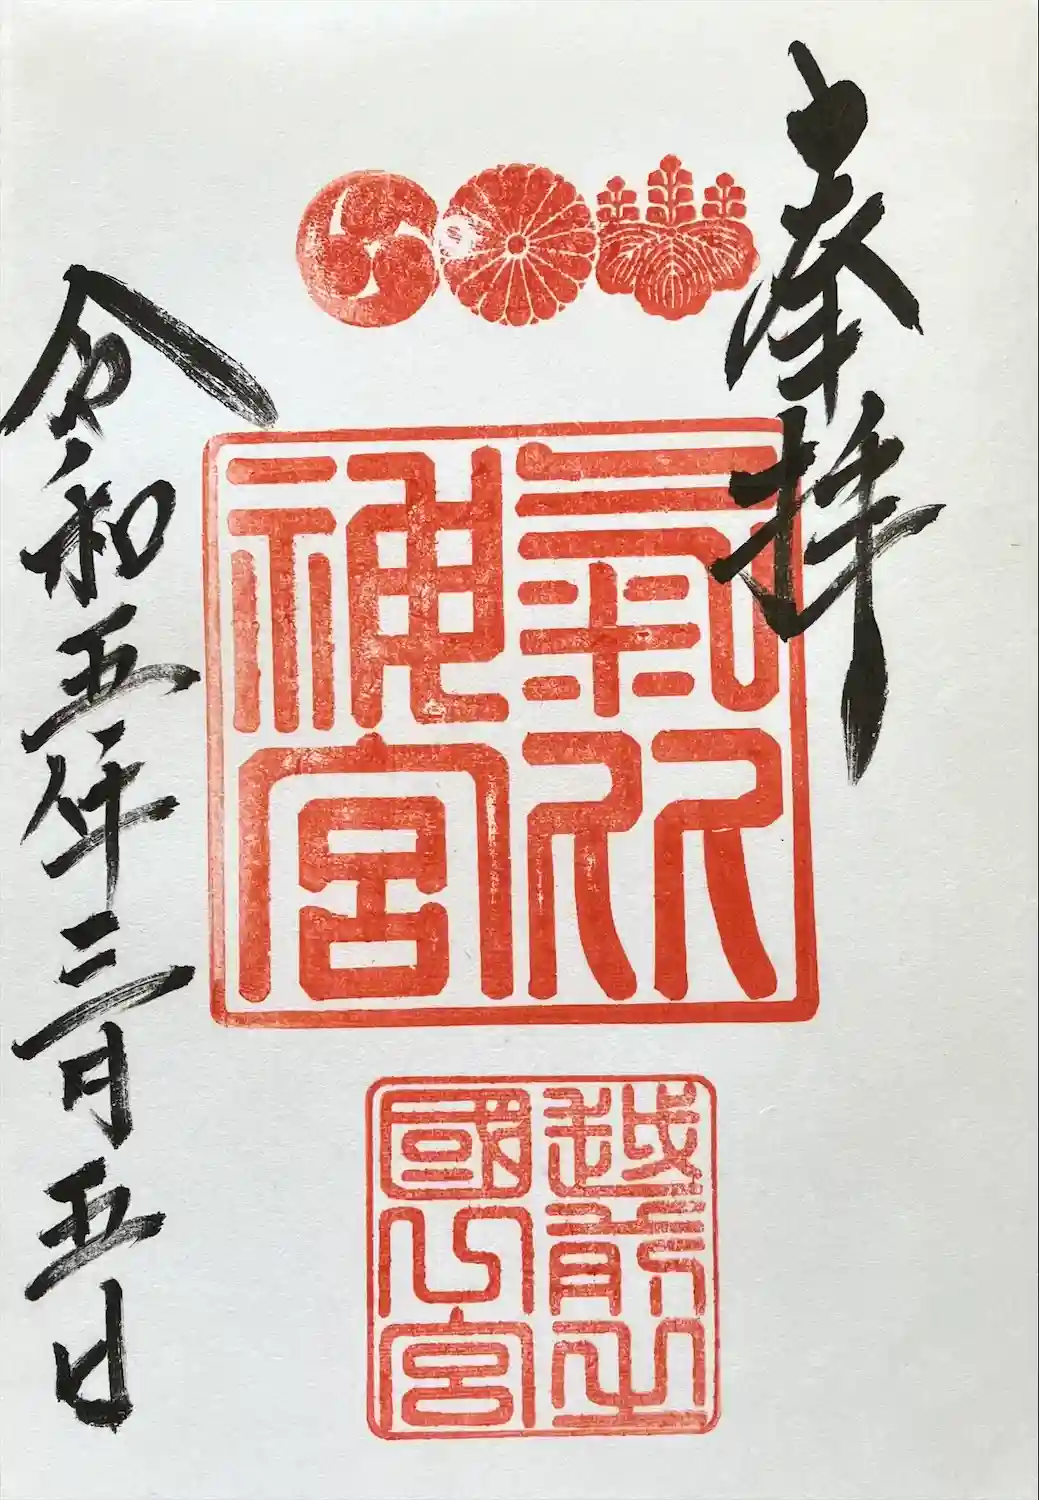 奉拝
氣比
神宮
越前之
國一宮
令和五年三月五日